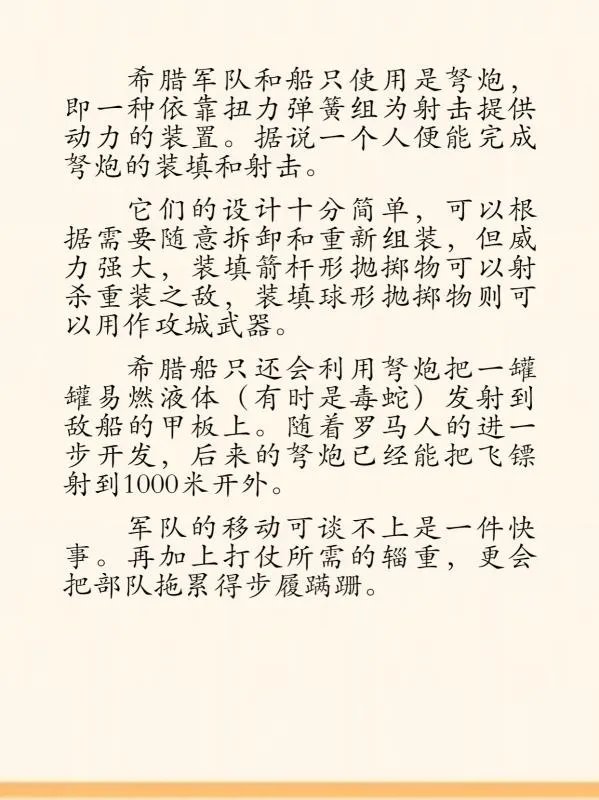 希腊军队和船只使用是弩炮，
即一种依靠扭力弹簧组为射击提供
动力的装置。据说一个人便能完成
弩炮的装填和射击。
它们的设计十分简单，可以根
据需要随意拆卸和重新组装，但威
力强大，装填箭杆形抛掷物可以射
杀重装之敌，装填球形抛掷物则可
以用作攻城武器。
希腊船只还会利用弩炮把一罐
罐易燃液体（有时是毒蛇）发射到
敌船的甲板上。随着罗马人的进一
步开发，后来的弩炮已经能把飞镖
射到1000米开外。
军队的移动可谈不上是一件快
事。再加上打仗所需的辎重，更会
把部队拖累得步履蹒跚。